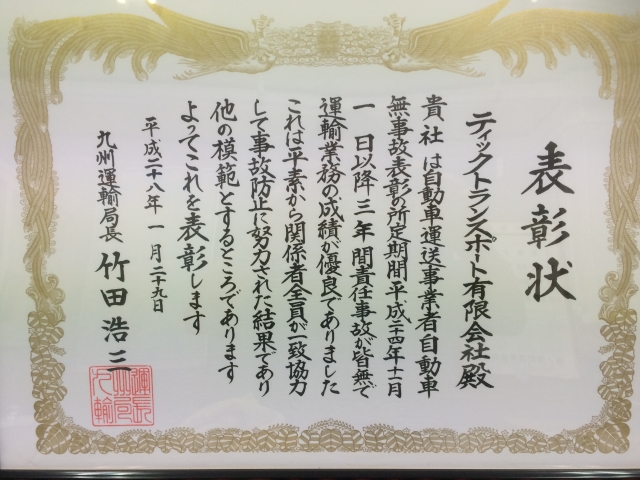 表彰状
ティックトランスポート有限会社殿
貴社は自動車運送事業者自動車
無事故表彰の所定期間平成二十四年十一月
一日以降三年間責任事故が皆無で
運輸業務の成績が優良でありました
これは平素から関係者全員が一致協力
して事故防止に努力された結果であり
他の模範とするところであります
よってこれを表彰します
平成二十八年一月二十九日
九州運輸局長 竹田浩三